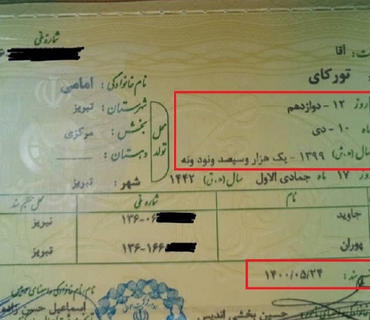 شماره ملی
آقا
تورکای
نام خانوادگی: امامی
روز ۱۲ - دوازدهم
شهرستان: تبریز
ماه ۱۰ - دی
بخش: مرکزی
محل تولد
سال (ه.ش) ۱۳۹۹ - یک هزار و سیصد و نود و نه
دهستان: ----
روز ۱۷ ماه جمادی الاول سال (ه.ق) ۱۴۴۲ شهر: تبریز
نام
شماره ملی
محل تنظیم سند
جاوید
۱۳۶-۰۶
تبریز
پوران
۱۳۶-۱۶۶
تبریز
۱۴۰۰/۰۵/۲۴
حسین بخشی اندیس
اسماعیل حسن زاده